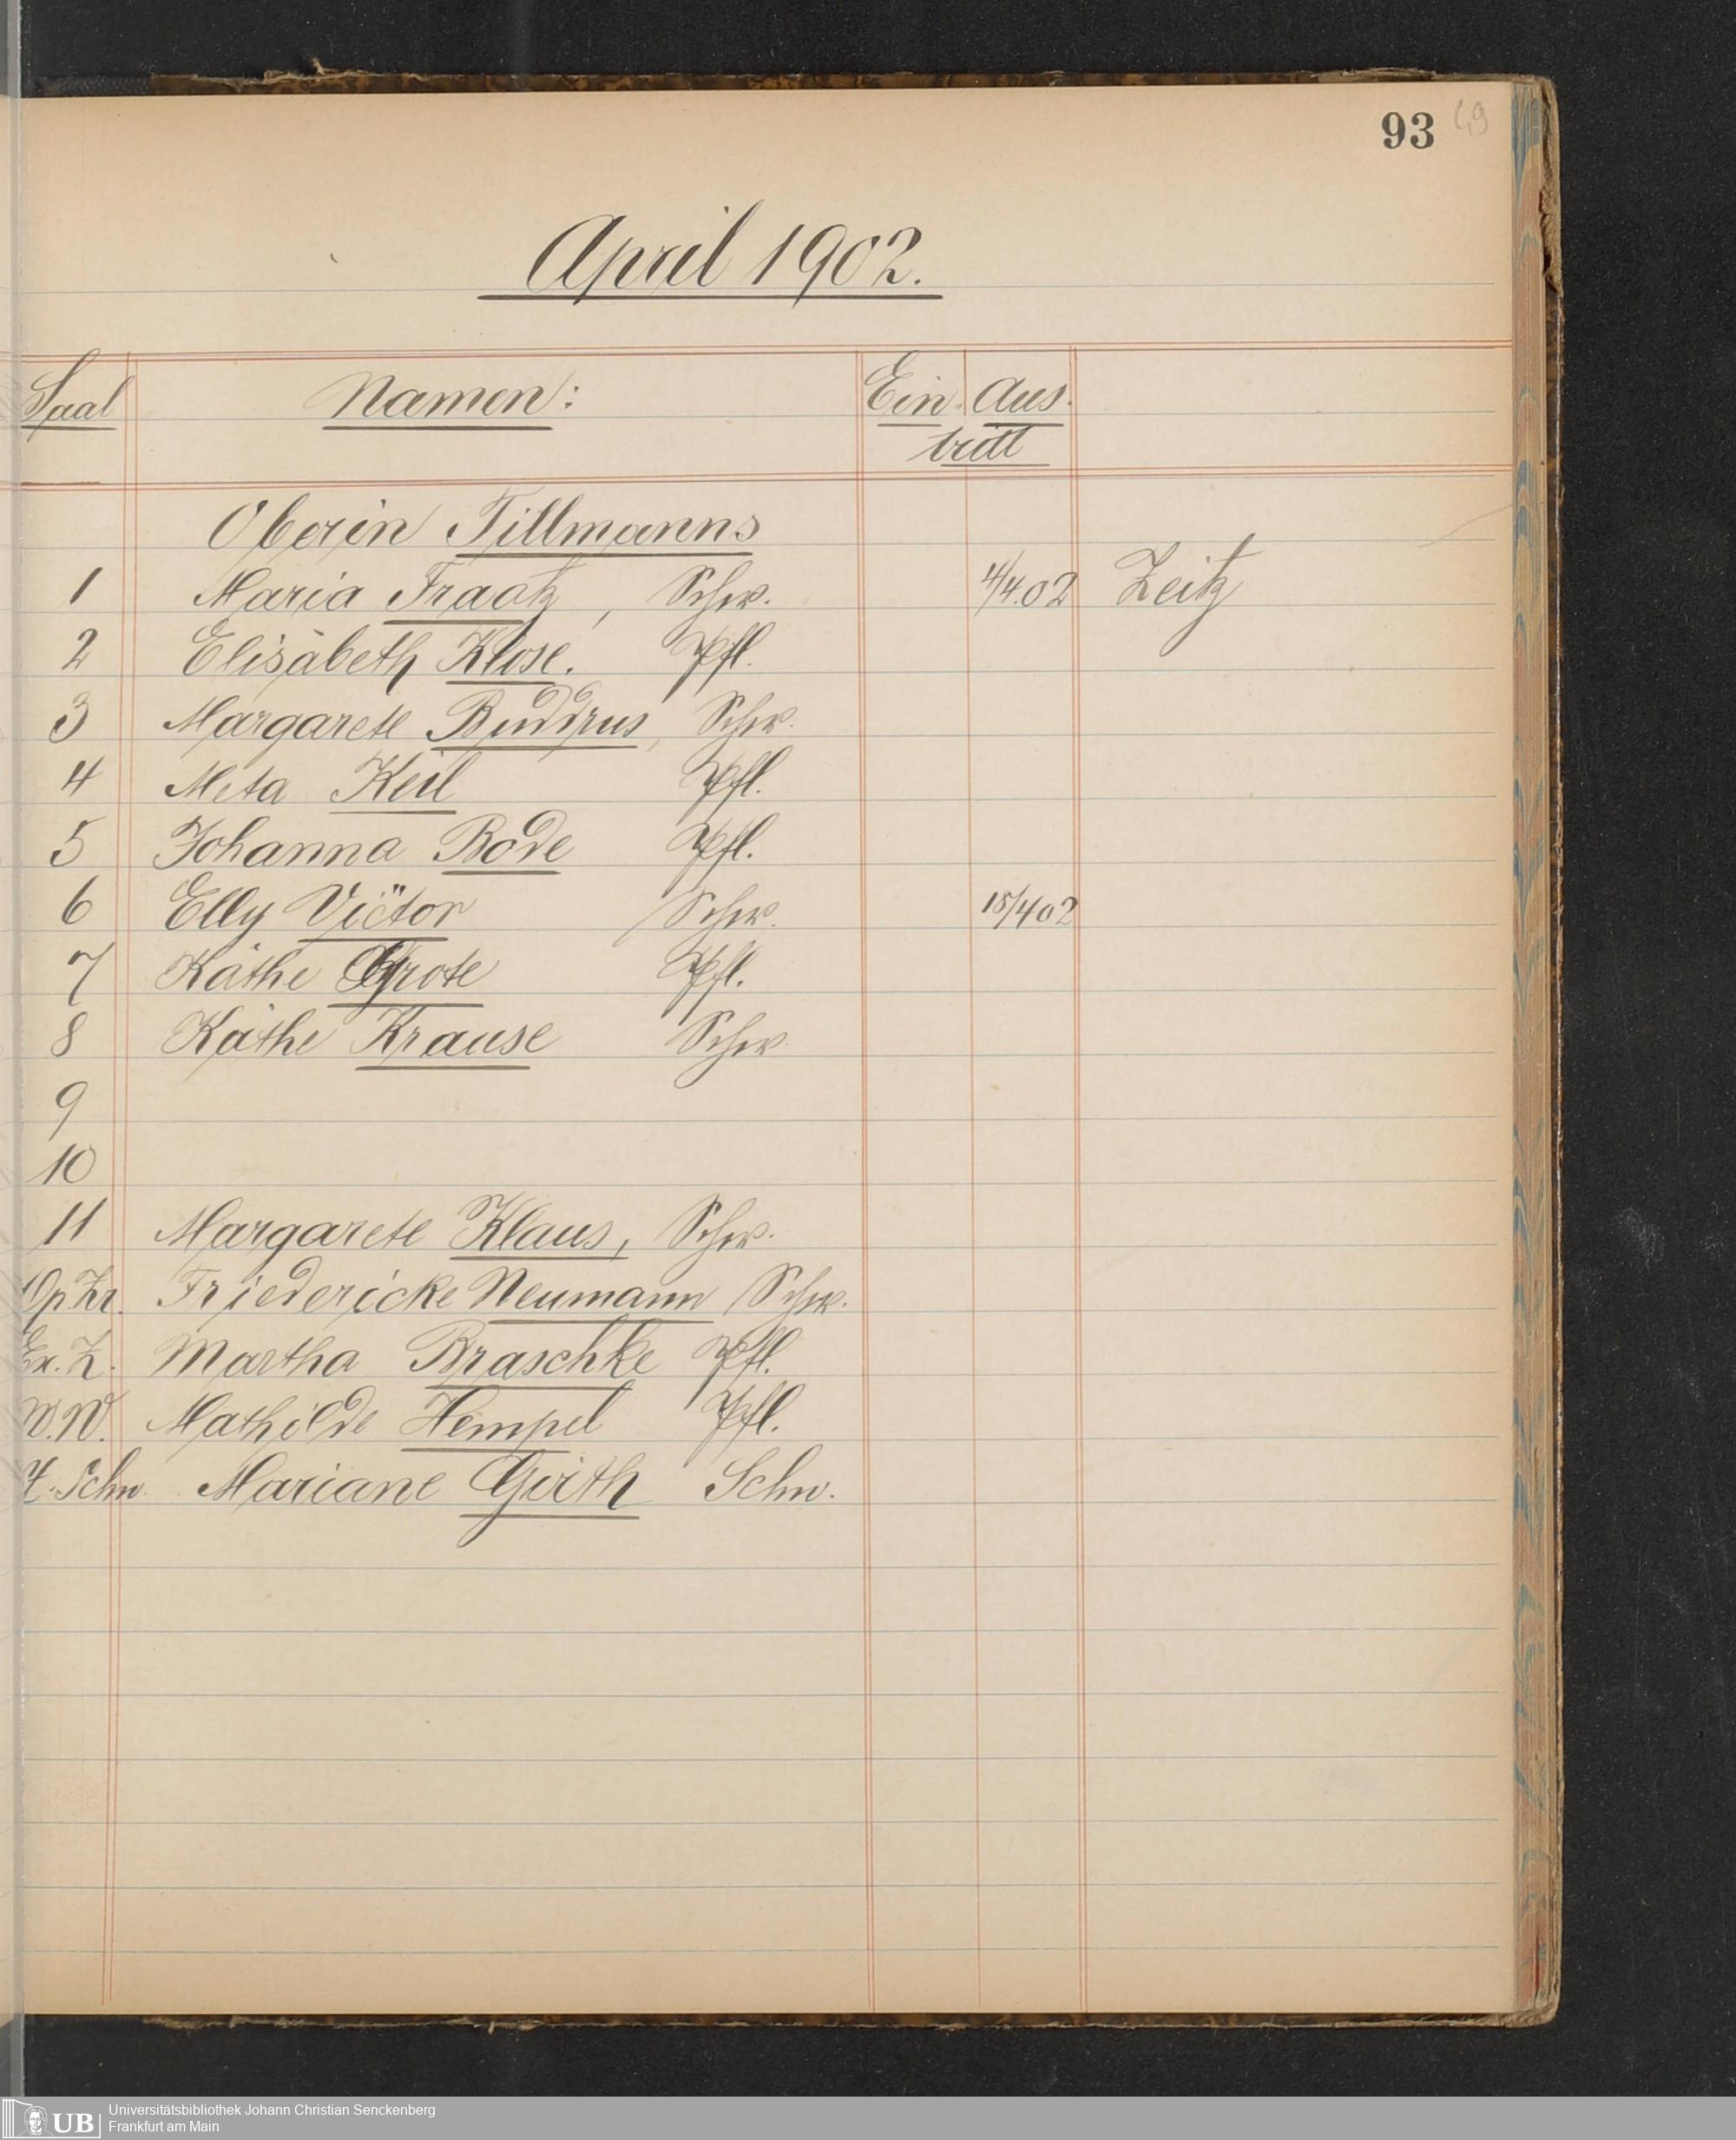 93 49
April 1902.
Saal Namen: Ein. Aus.
tritt
Oberin Tillmanns
1 Maria Fraatz, Schw. 4/4.02 Zeitz
2 Elisabeth Klose. Pfl.
3 Margarete Buddrus, Schw.
4 Meta Keil Pfl.
5 Johanna Bode Pfl.
6 Elly Victor Schw. 15/402
7 Käthe Grote Pfl.
8 Käthe Krause Schw.
9
10
11 Margarete Klaus, Schw.
Op.Zr. Friedericke Neumann Schw.
Ex. Z. Martha Braschke Pfl.
W.W. Mathilde Hempel Pfl.
Schw. Mariane Girth Schw.
UB Universitätsbibliothek Johann Christian Senckenberg
Frankfurt am Main